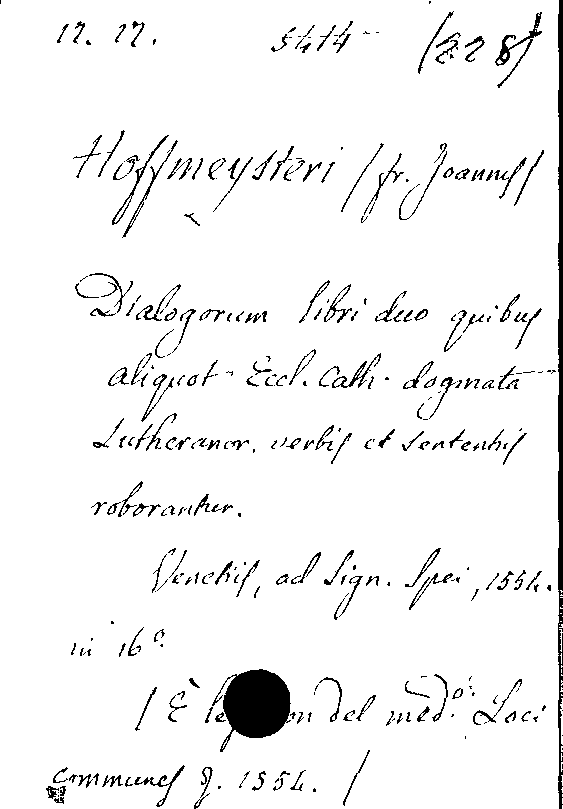 17. 17. 5414 (228)
Hoffmeysteri (fr. Joannes)
Dialogorum libri duo quibus
aliquot Eccl. Cath. dogmata
Lutheranor. verbis et sententiis
roborantur.
Venetiis, ad Sign. Spei, 1554.
in 16º.
(È le on del medº. Loci
communes 1554. )